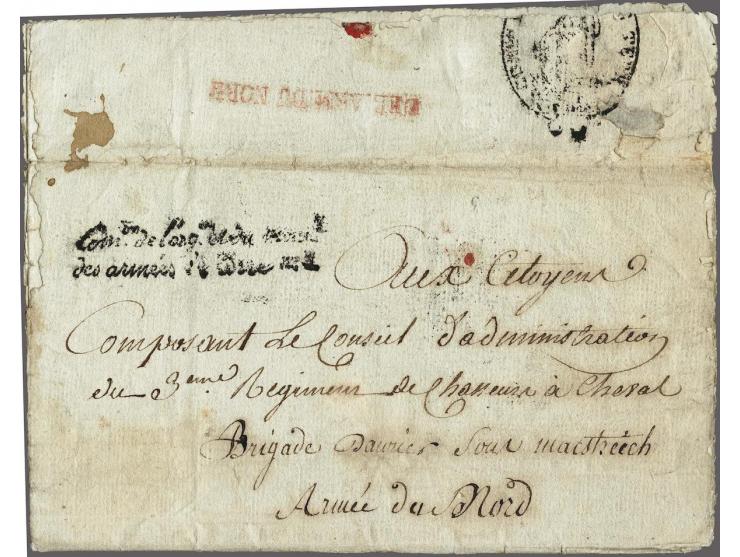 ARM. DU NORD
Com.on de l'org.on et du mouv.t
des armées de
Aux Citoyens
Composant Le Conseil d'administration
du 3eme Regiment de Chasseurs à Cheval
Brigade Daurier sous maestreech
Armée du Nord